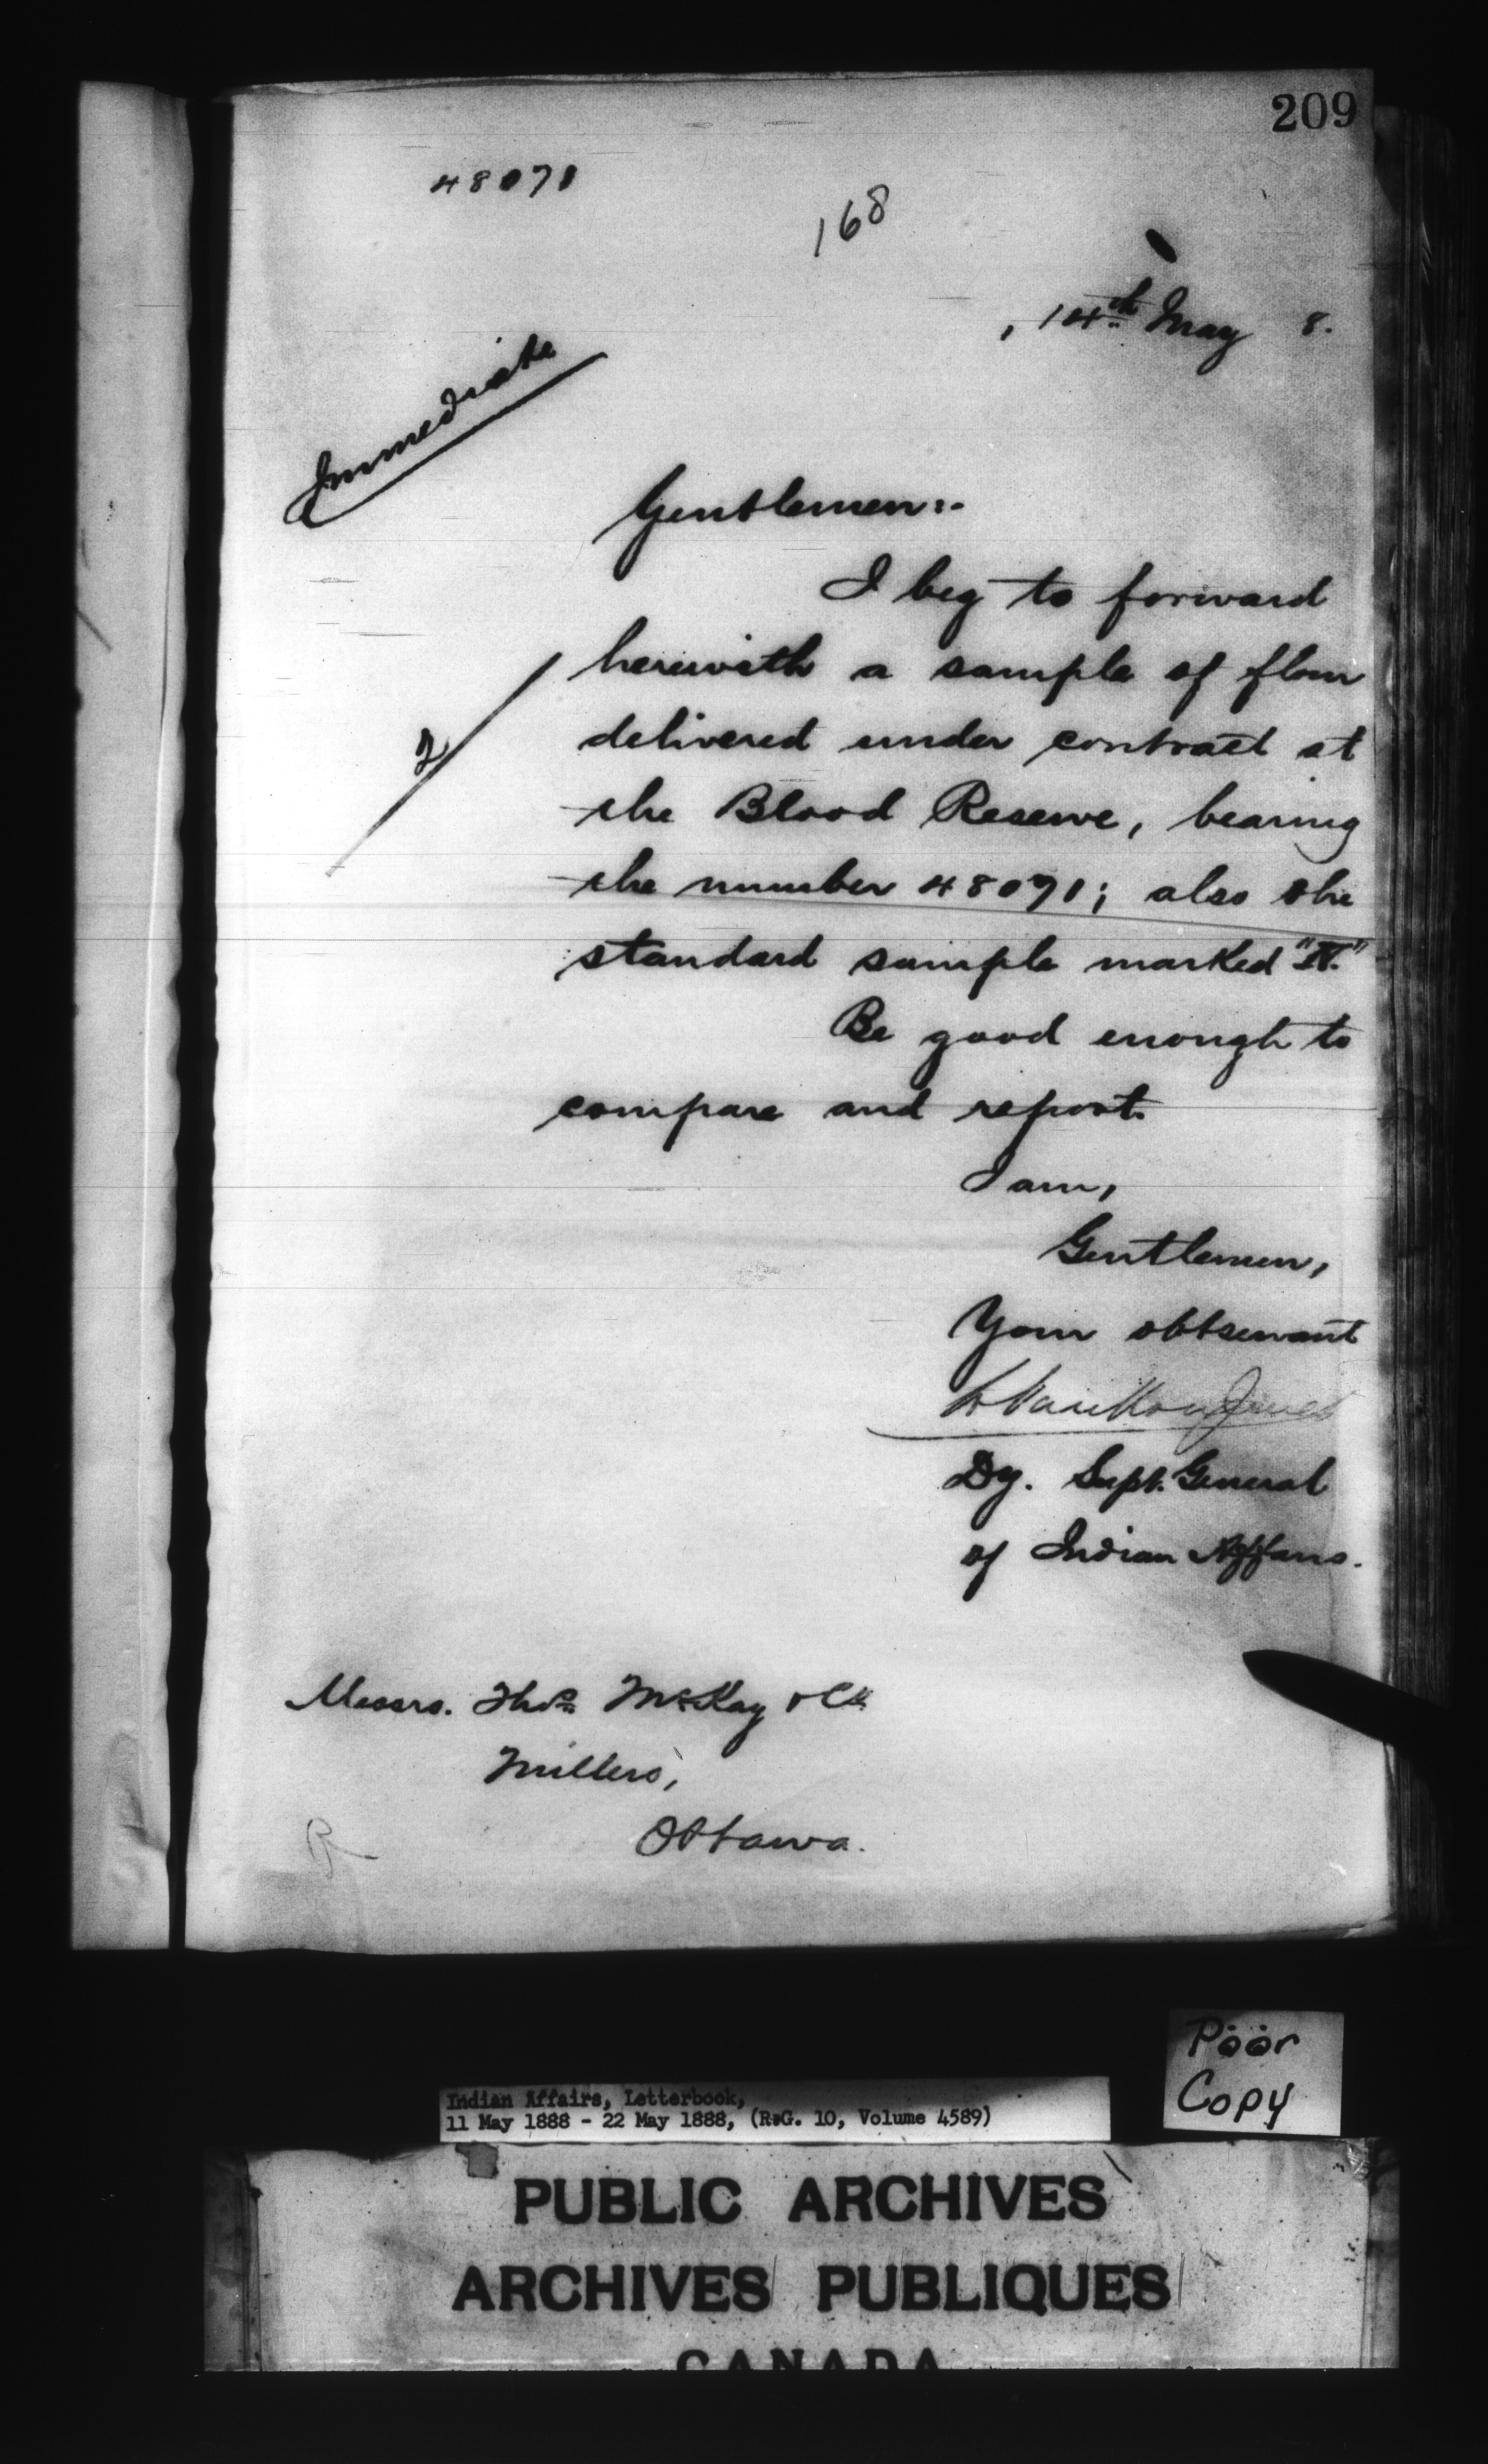 209
48071
168
, 14th May 8.
Immediate
Gentlemen:-
I beg to forward
herewith a sample of flour
2
delivered under contract at
the Blood Reserve, bearing
the number 48071; also the
standard sample marked "IV."
Be good enough to
compare and report.
I am,
Gentlemen,
Your obt servant
L VanKoughnet
Dy. Supt. General
of Indian Affairs.
Messrs. Thos. McKay & Co.
Millers,
Ottawa.
Poor
Copy
Indian Affairs, Letterbook,
11 May 1888 - 22 May 1888, (R.G. 10, Volume 4589)
PUBLIC ARCHIVES
ARCHIVES PUBLIQUES
CANADA